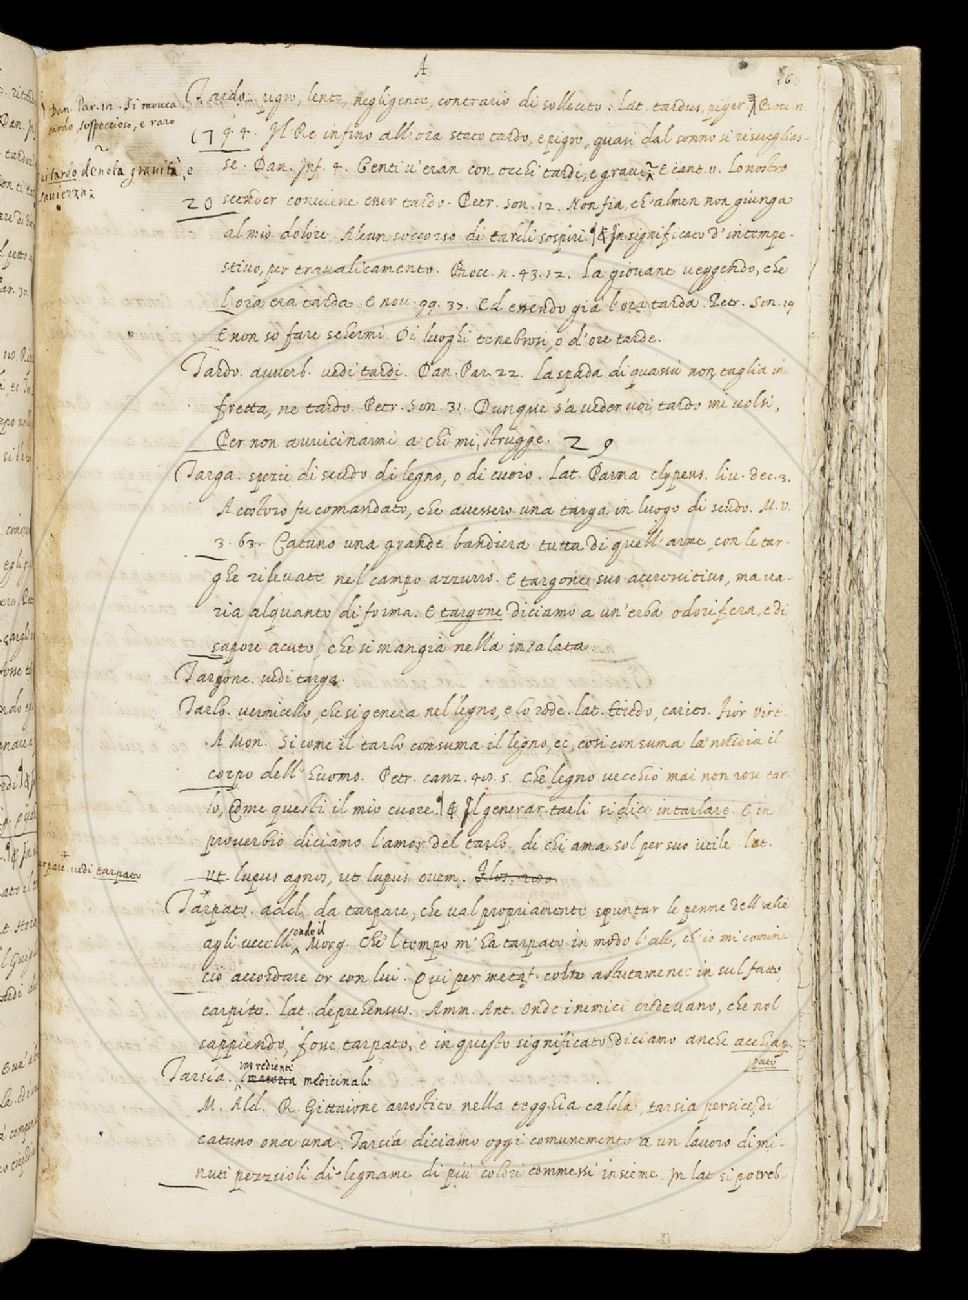 A
16
Tardo. pigro, lento, negligente, contrario di sollecito. Lat. tardus, piger. Bocc. n.
9. 4. Il Re infino all'ora stato tardo, e pigro, quasi dal sonno si risveglias-
se. Dan. Inf. 4. Genti v'eran con occhi tardi, e gravi. E cant. 11. Lo nostro
scender conviene esser tardo. Petr. Son. 12. Non fia, ch'almen non giunga
al mio dolore Alcun soccorso di tardi sospiri. & In significato d'intempe-
stivo, per travalicamento. Bocc. n. 43. 12. La giovane veggendo, che
l'ora era tarda. E nov. 99. 37. Ed essendo già l'ora tarda. Petr. Son. 19
E non so fare schermi Di luoghi tenebrosi, o d'ore tarde.
Tardo. avverb. vedi tardi. Dan. Par. 22. La spada di quassù non taglia in
fretta, ne tardo. Petr. Son. 31. Dunque s'a veder voi tardo mi volsi,
Per non avvicinarmi a chi mi strugge. 29
Targa. spezie di scudo di legno, o di cuoio. Lat. Parma clypeus. liv. dec. 3.
A costoro fu comandato, che avessero una targa in luogo di scudo. M. V.
3. 63. Catuno una grande bandiera tutta di quell'arme, con le tar-
ghe rilevate nel campo azzurro. E targone suo accrescitivo, ma va-
ria alquanto di forma. E targone diciamo a un'erba odorifera, e di
sapore acuto, che si mangia nella insalata
Targone. vedi targa.
Tarlo. vermicello, che si genera nel legno, e lo rode. lat. teredo, caries. Fior Virt.
A Mon. Si come il tarlo consuma il legno, ec, così consuma la nvidia il
corpo dell'huomo. Petr. canz. 40. 5. Che legno vecchio mai non rose tar-
lo, Come questi il mio cuore. & Il generar tarli si dice intarlare. E in
proverbio diciamo l'amor del tarlo, di chi ama sol per suo utile. lat.
ut lupus agnos, ut lupus ovem.
Tarpato. add. da tarpare, che val propriamente spuntar le penne dell'alie
agli uccelli, onde il Morg. Che 'l tempo m'ha tarpato in modo l'ale, ch'io mi comin-
ciò accordare or con lui. Qui per metaf. colto astutamente in sul fatto
carpito. Lat. deprehensus. Amm. Ant. Onde i nemici credevano, che nol
sappiendo, fosse tarpato, e in questo significato diciamo anche acchiap-
pato
Tarsia. ingrediente medicinale
M. Ald. P. Gittaione arrostito nella tegghia calda, tarsia persice, di
catuno once una. Tarsia diciamo oggi comunemente a un lavoro di mi-
nuti pezzuoli di legname di più colori commessi insieme. In lat si potreb-
Dan. Par. 12. Si movea
tardo sospeccioso, e raro
tardo denota gravità, e
17
20
vedi tarpato